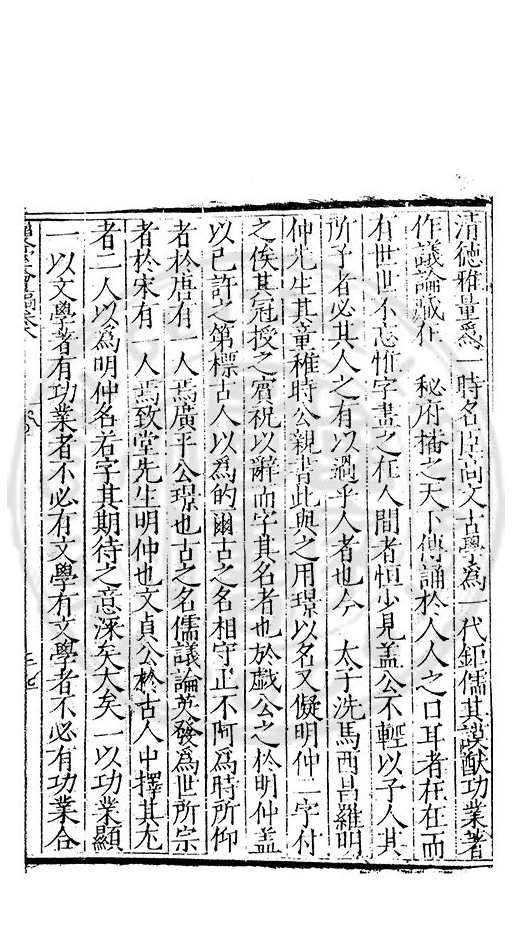 清德雅量爲一時名臣尚文古學爲一代鉅儒其謨猷功業著
作議論藏在 秘府播之天下傳誦於人人之口耳者在在而
有世世不忘惟字畫之在人間者恒少見盖公不輕以予人其
所予者必其人之有以過乎人者也今 太子洗馬西昌羅明
仲先生其童稚時公親書此與之用璟以名又儗明仲二字付
之俟其冠授之賓祝以辭而字其名者也於戱公之於明仲盖
以已許之第標古人以為的爾古之名相守正不阿爲時所仰
者於唐有一人焉廣平公璟也古之名儒議論英發爲世所宗
者於宋有一人焉致堂先生明仲也文貞公於古人中擇其尤
者二人以爲明仲名若字其期待之意深矣大矣一以功業顯
一以文學著有功業者不必有文學有文學者不必有功業合